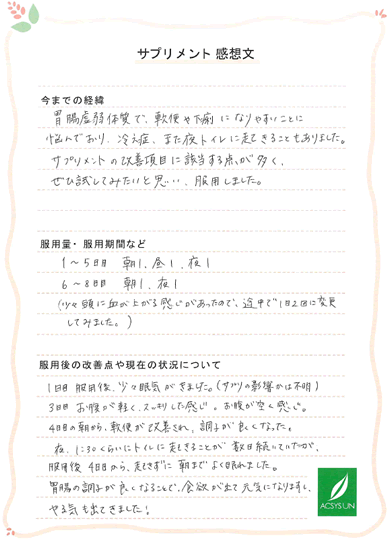 サプリメント 感想文
今までの経緯
胃腸虚弱体質で、軟便や下痢になりやすいことに
悩んでおり、冷え症、また夜トイレに起きることもありました。
サプリメントの改善項目に該当する点が多く、
ぜひ試してみたいと思い、服用しました。
服用量・服用期間など
1〜5日目 朝1、昼1、夜1
6〜8日目 朝1、夜1
(少々頭に血が上がる感じがあったので、途中で1日2回に変更
してみました。)
服用後の改善点や現在の状況について
1日目 服用後、少々眠気がきました。(サプリの影響かは不明)
3日目 お腹が軽く、スッキリした感じ。お腹が空く感じ。
4日目の朝から、軟便が改善され、調子が良くなった。
夜、1:30くらいにトイレに起きることが数日続いていたが、
服用後 4日目から、起きずに朝までよく眠れました。
胃腸の調子が良くなることで、食欲が出て元気になりますし、
やる気も出てきました!
ACSYSUN